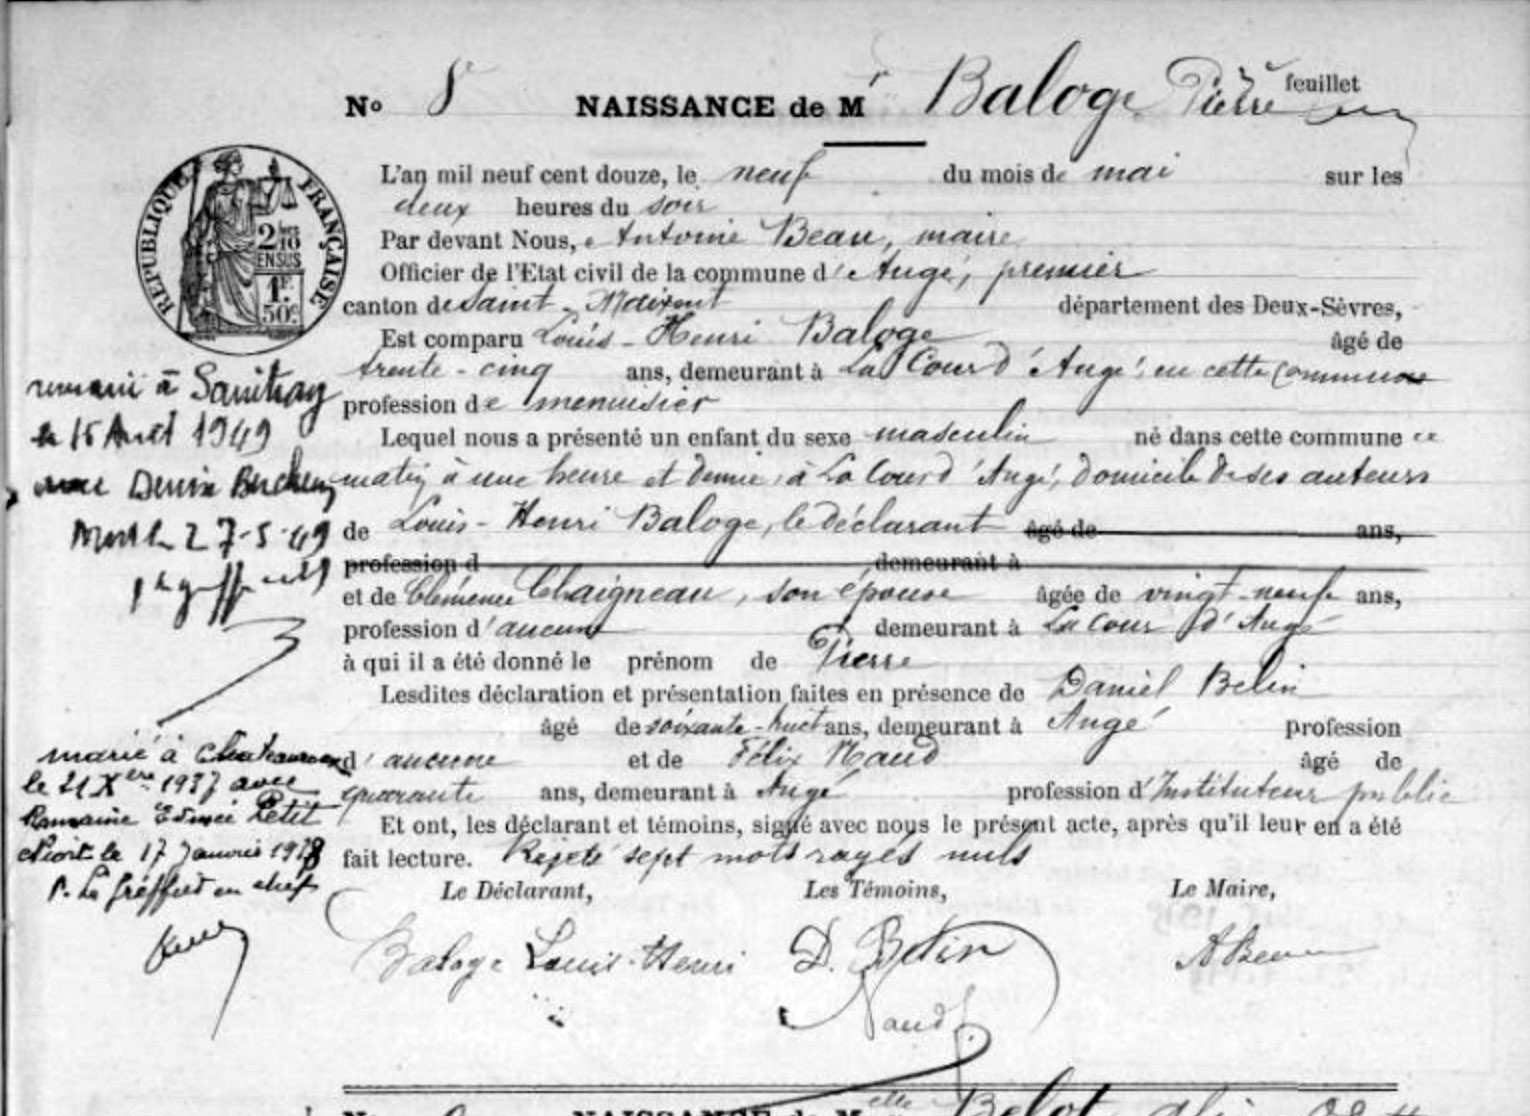 feuillet
No 8 NAISSANCE de Mr Baloge Pierre
L'an mil neuf cent douze, le neuf du mois de mai sur les
deux heures du soir
Par devant Nous, Antoine Beau, maire
Officier de l'Etat civil de la commune d'Augé, premier
canton de Saint-Maixent département des Deux-Sèvres,
Est comparu Louis-Henri Baloge âgé de
trente-cinq ans, demeurant à La Cour d'Augé, en cette commune
profession de menuisier
Lequel nous a présenté un enfant du sexe masculin né dans cette commune ce
matin à une heure et demie, à La Cour d'Augé, domicile de ses auteurs
de Louis-Henri Baloge, le déclarant âgé de ans,
profession d demeurant à
et de Clémence Chaigneau, son épouse âgée de vingt-neuf ans,
profession d'aucune demeurant à La Cour d'Augé
à qui il a été donné le prénom de Pierre
Lesdites déclaration et présentation faites en présence de Daniel Belin
âgé de soixante-huit ans, demeurant à Augé profession
d'aucune et de Félix Naud âgé de
quarante ans, demeurant à Augé profession d'Instituteur public
Et ont, les déclarant et témoins, signé avec nous le présent acte, après qu'il leur en a été
fait lecture. Rejeté sept mots rayés nuls
Le Déclarant, Les Témoins, Le Maire,
Baloge Louis-Henri D. Belin ABeau
Naud
REPUBLIQUE FRANÇAISE
2/10
EN SUS
1F.
50c.
remarié à Sanitray
le 15 1949
Denise
27-5-49
marié à Chateauroux
le 21 Xbre 1937 avec
Romaine Edmée Petit
Niort le 17 Janvier 1938
P. Le Greffier en chef
NAISSANCE de Melle Belot